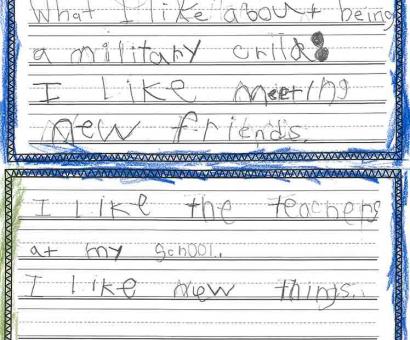 What I like about being
a military child:
I like meeting
new friends.
I like the teachers
at my school.
I like new things.